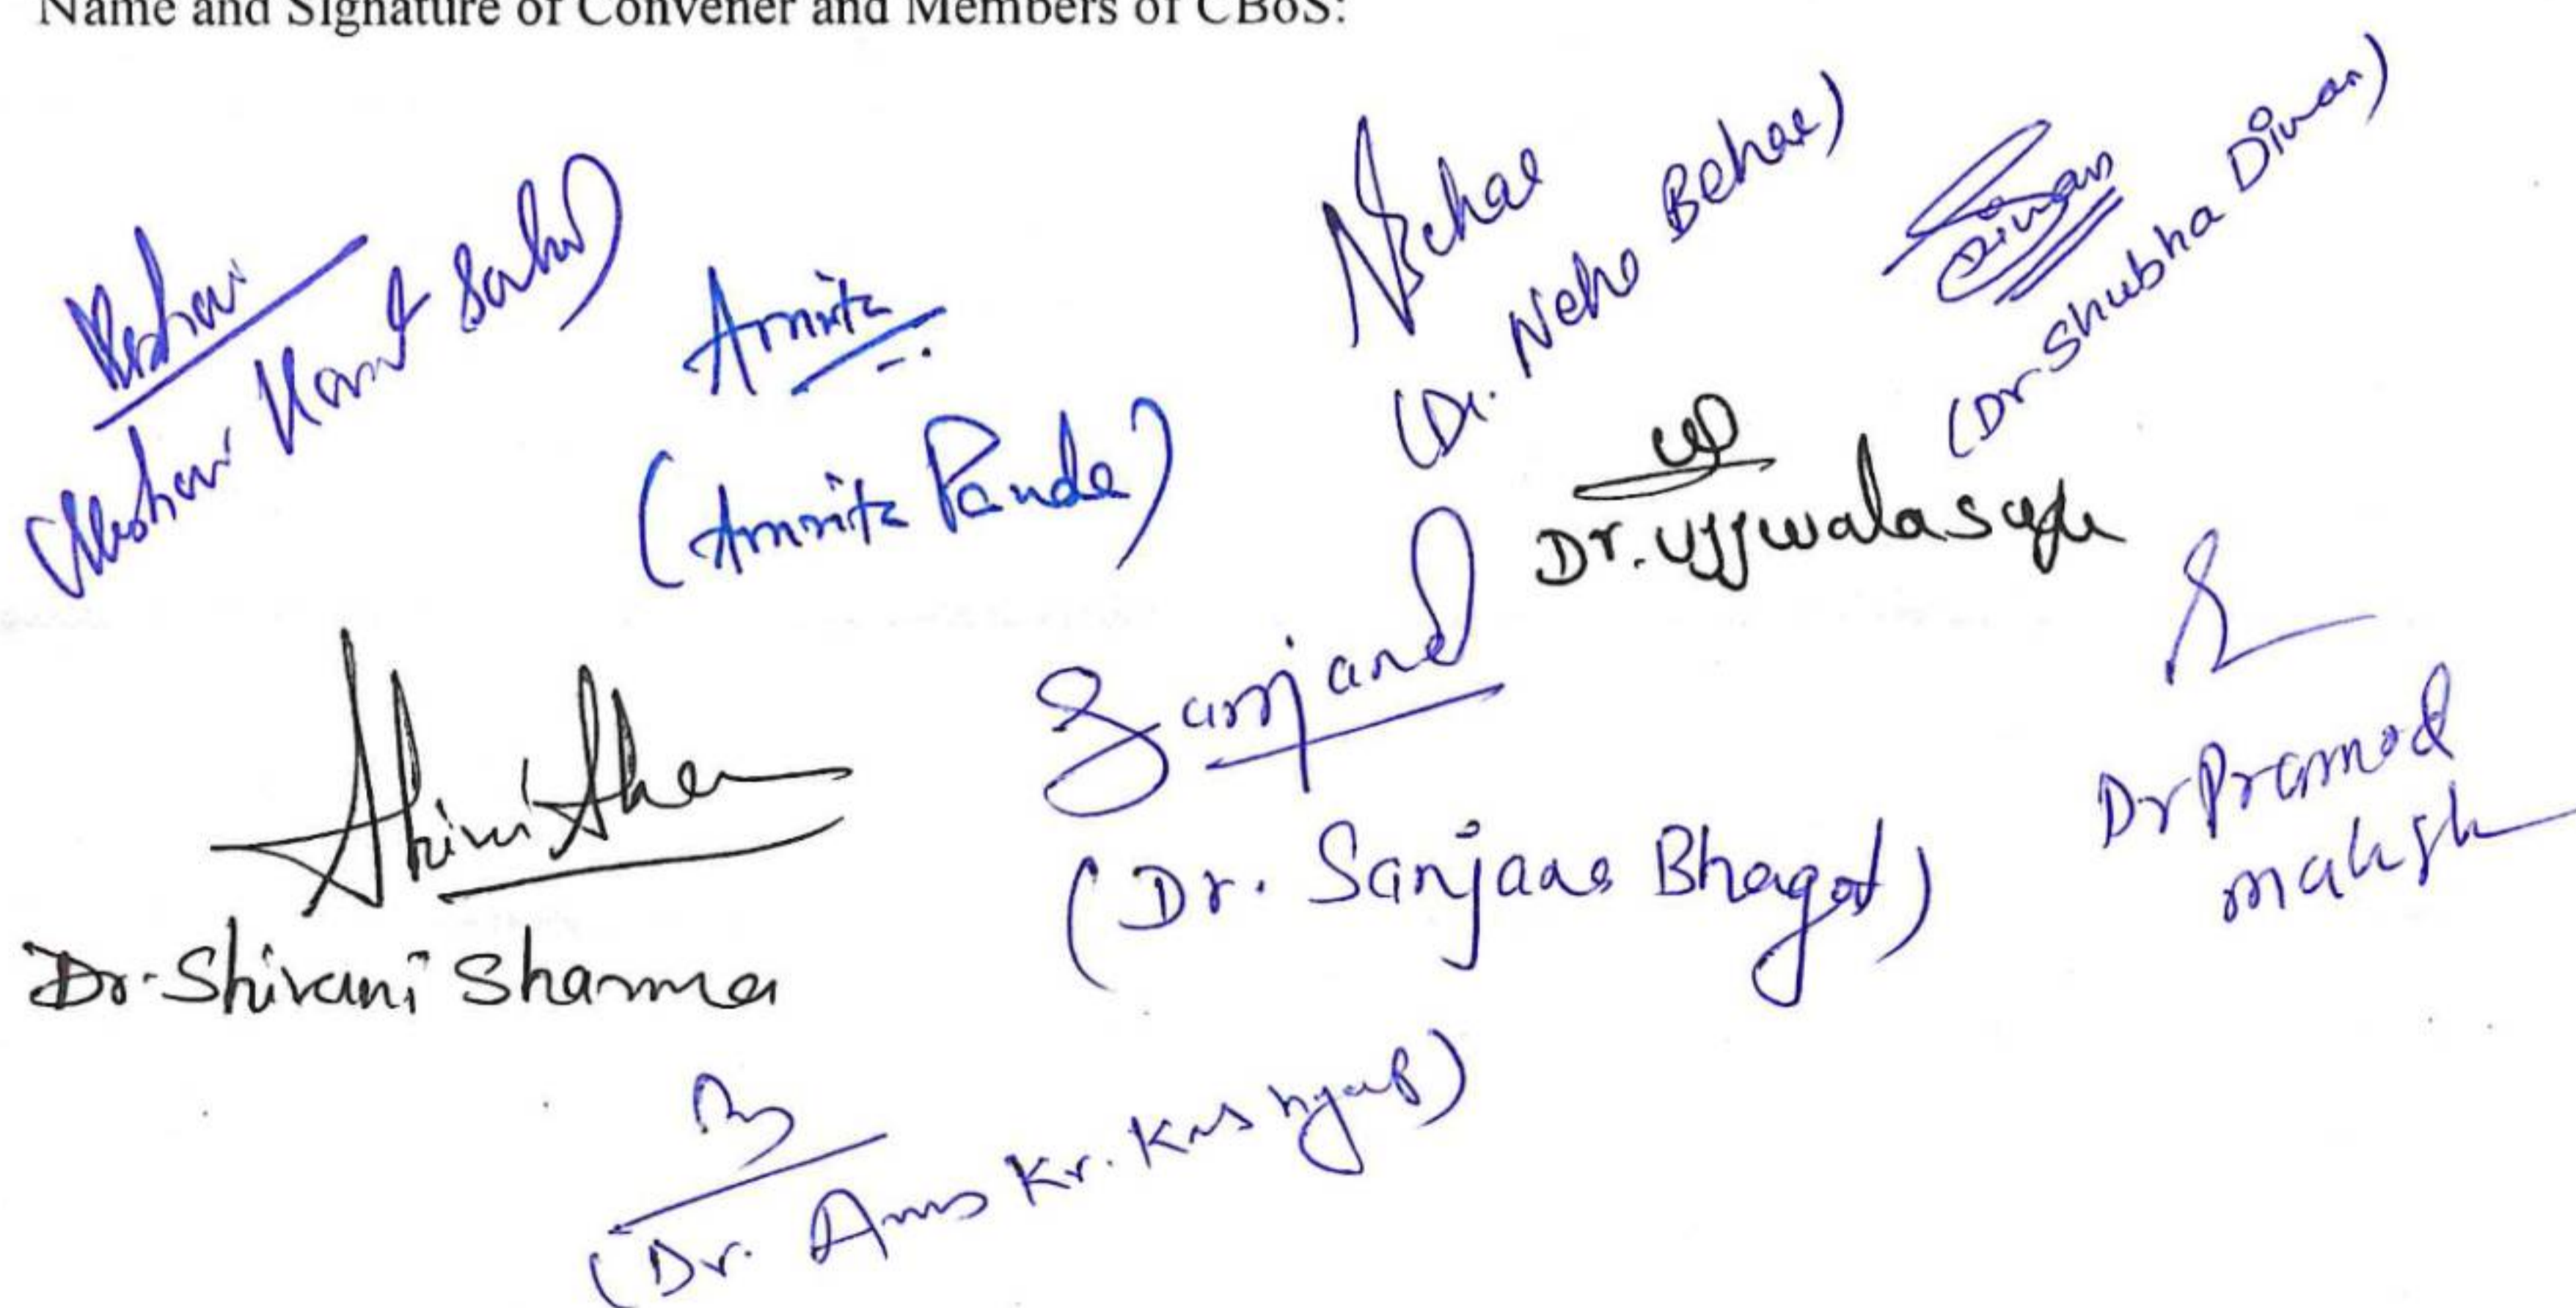 Name and Signature of Convener and Members of CBoS:
Keshav
(Keshav Kant Sahu)
Amrita
(Amrita Pande)
NBehar
(Dr. Neha Behar)
Diwan
(Dr Shubha Diwan)
Dr. Ujjwala
Sanjana
(Dr. Sanjana Bhagat)
Dr Pramod
Dr. Shivani Sharma
(Dr. Kr. Kashyap)